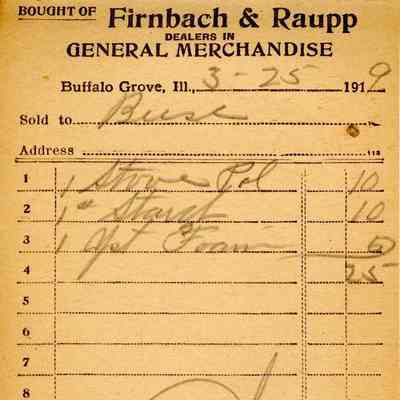 BOUGHT OF Firnbach & Raupp
DEALERS IN
GENERAL MERCHANDISE
Buffalo Grove, Ill., 3-25 1919
Sold to Buse
Address
1 1 Stove Pol 10
2 1# Starch 10
3 1 Foam 5
4 25
5
6
7
8